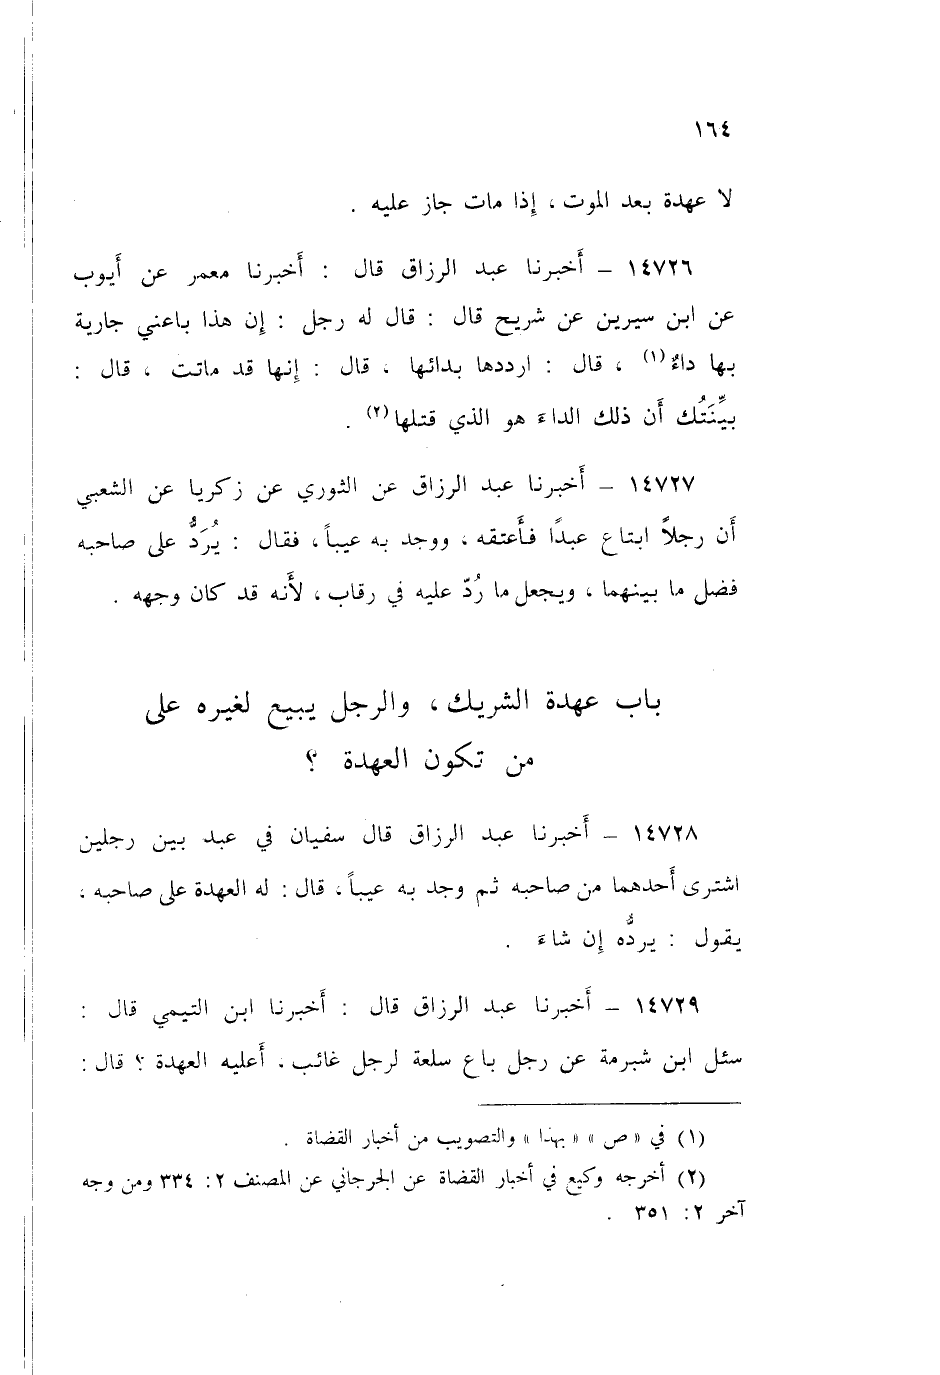 ١٦٤
لا عهدة بعد الموت ، إذا مات جاز عليه .
١٤٧٢٦ – أَخبرنا عبد الرزاق قال : أَخبرنا معمر عن أَيوب
عن ابن سيرين عن شريح قال : قال له رجل : إن هذا باعني جارية
بها داءٌ(١) ، قال : ارددها بدائها ، قال : إنها قد ماتت ، قال :
بيِّنَتُك أَن ذلك الداءَ هو الذي قتلها(٢) .
١٤٧٢٧ – أَخبرنا عبد الرزاق عن الثوري عن زكريا عن الشعبي
أَن رجلاً ابتاع عبدًا فأَعتقه ، ووجد به عيباً ، فقال : يُرَدُّ على صاحبه
فضل ما بينهما ، ويجعل ما رُدّ عليه في رقاب ، لأَنه قد كان وجهه .
باب عهدة الشريك ، والرجل يبيع لغيره على
من تكون العهدة ؟
١٤٧٢٨ – أَخبرنا عبد الرزاق قال سفيان في عبد بين رجلين
اشترى أَحدهما من صاحبه ثم وجد به عيباً ، قال : له العهدة على صاحبه ،
يقول : يردُّه إن شاءَ .
١٤٧٢٩ – أَخبرنا عبد الرزاق قال : أَخبرنا ابن التيمي قال :
سئل ابن شبرمة عن رجل باع سلعة لرجل غائب ، أَعليه العهدة ؟ قال :
(١) في « ص » « بهذا » والتصويب من أخبار القضاة .
(٢) أخرجه وكيع في أخبار القضاة عن الجرجاني عن المصنف ٢ : ٣٣٤ ومن وجه
آخر ٢ : ٣٥١ .